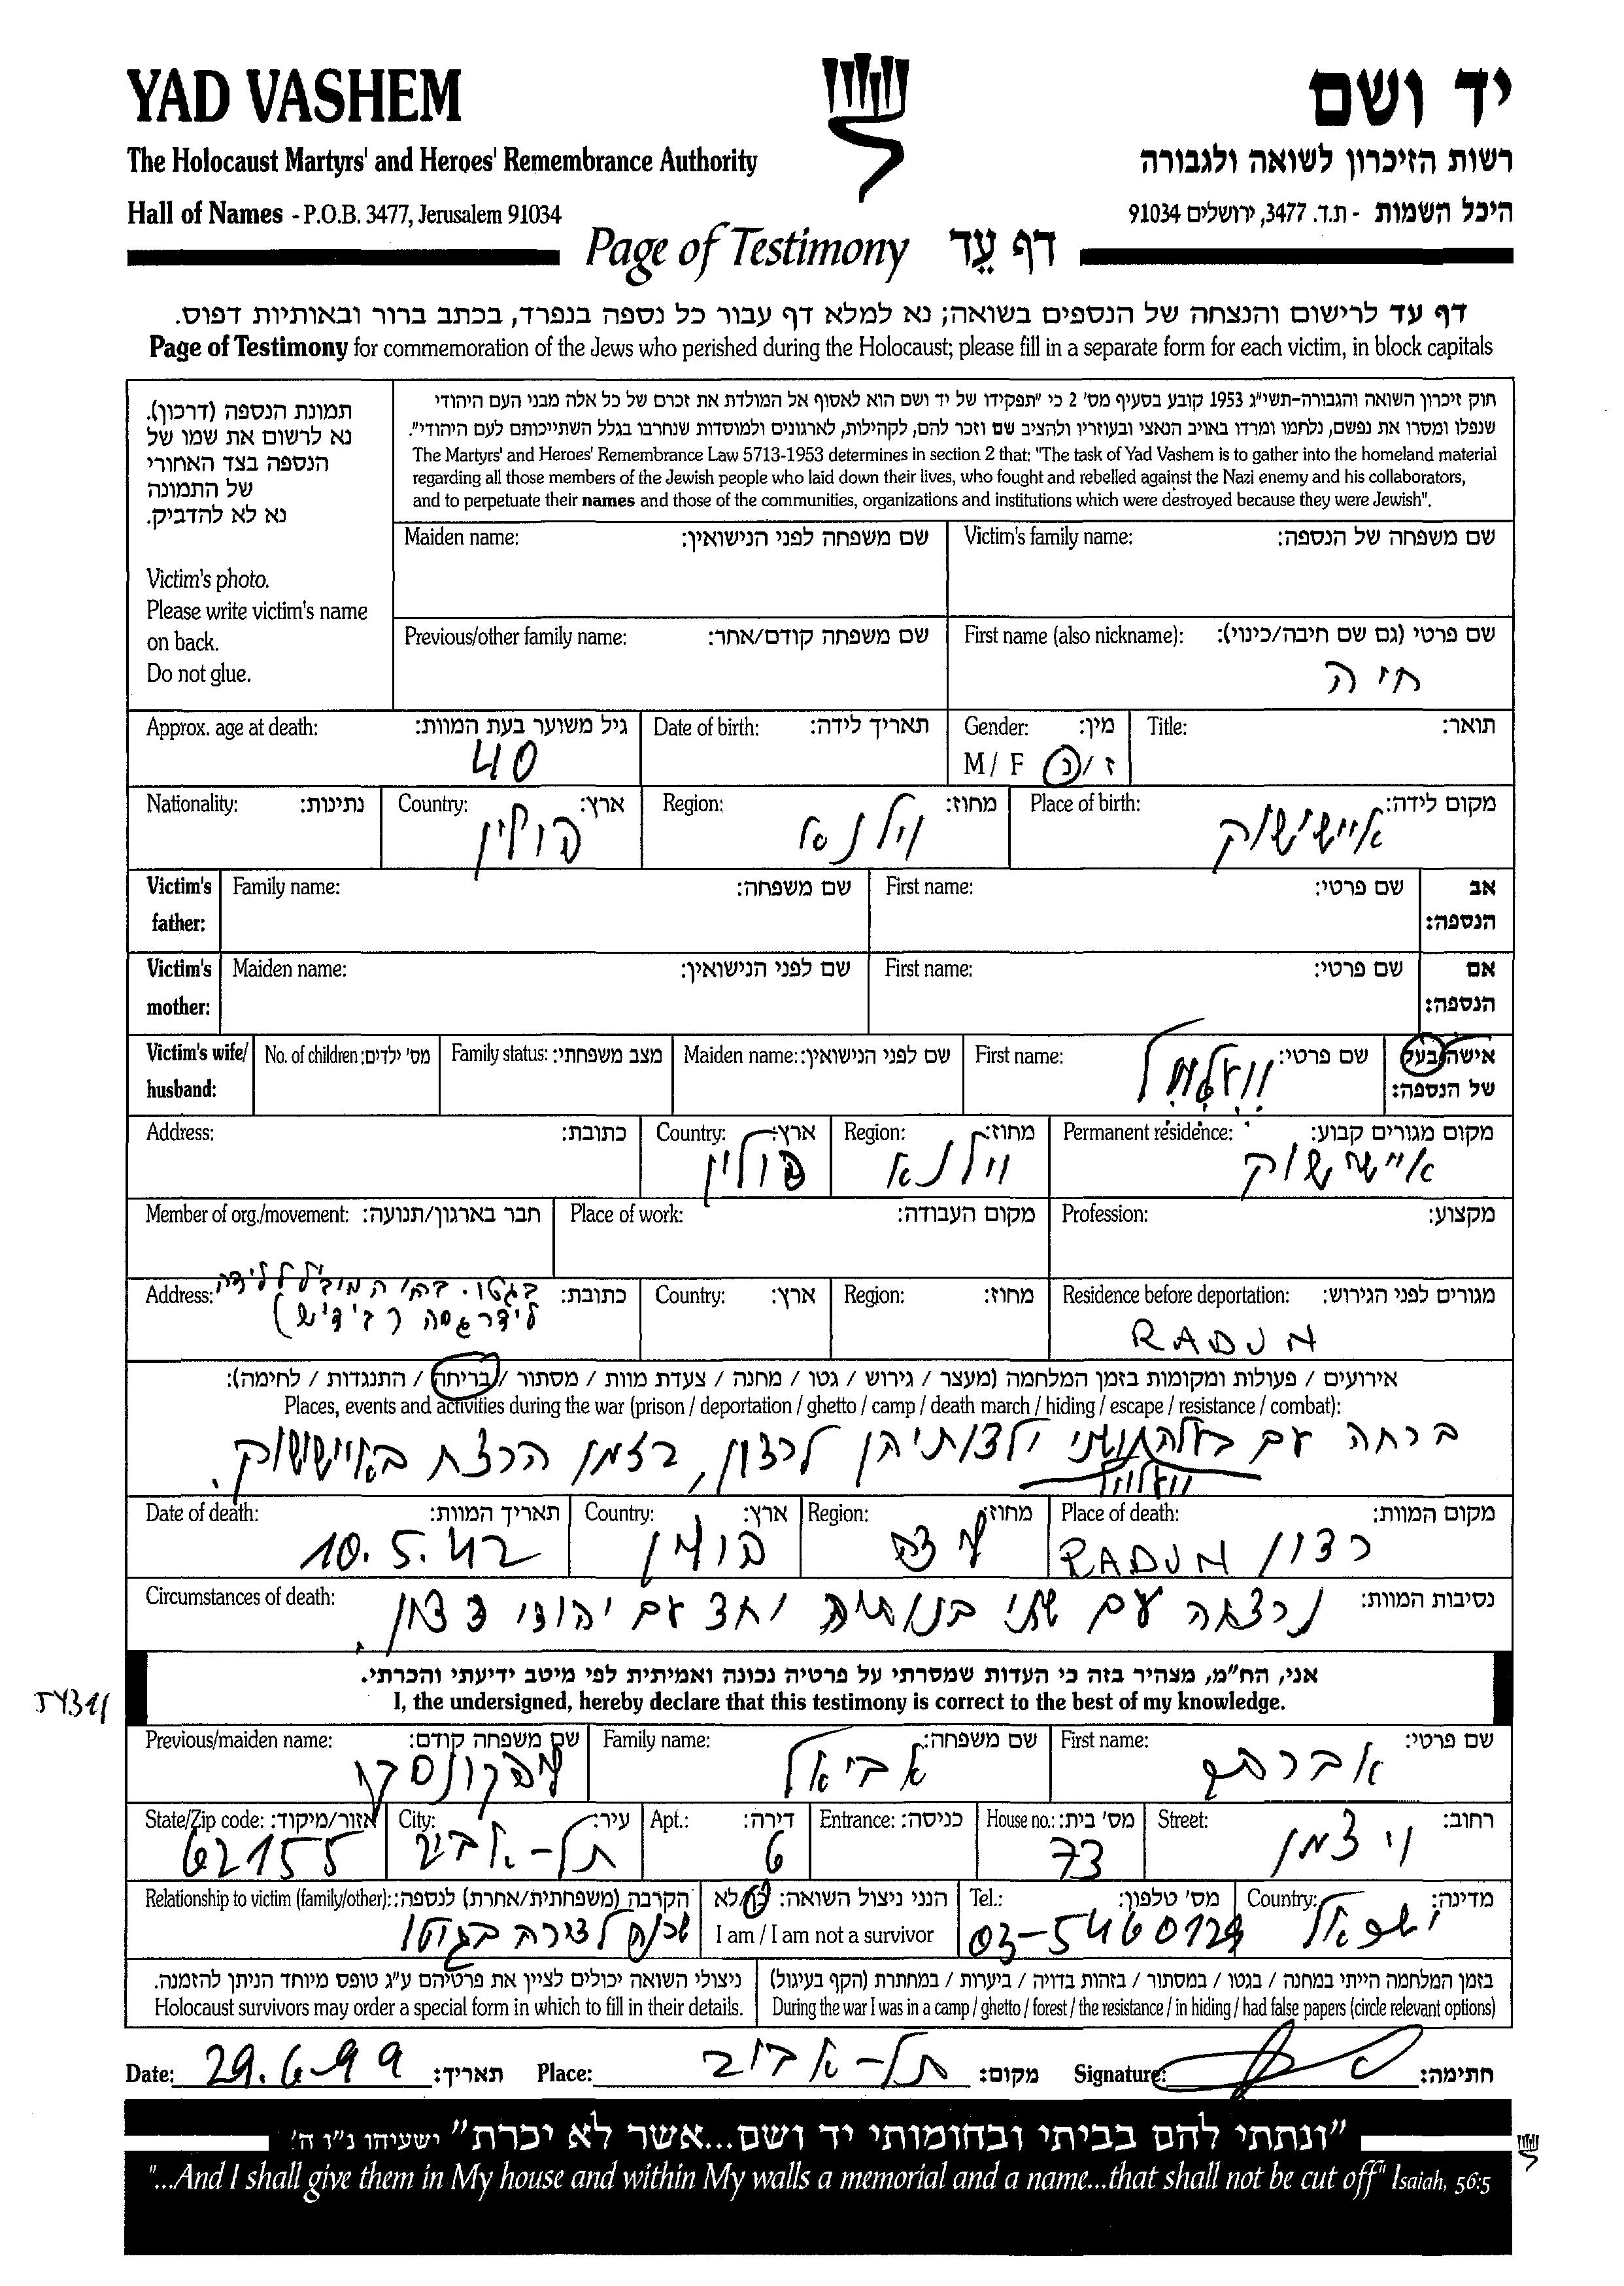 YAD VASHEM
יד ושם
The Holocaust Martyrs' and Heroes' Remembrance Authority
רשות הזיכרון לשואה ולגבורה
Hall of Names - P.O.B. 3477, Jerusalem 91034
היכל השמות - ת.ד. 3477, ירושלים 91034
Page of Testimony דף עֵד
דף עד לרישום והנצחה של הנספים בשואה; נא למלא דף עבור כל נספה בנפרד, בכתב ברור ובאותיות דפוס.
Page of Testimony for commemoration of the Jews who perished during the Holocaust; please fill in a separate form for each victim, in block capitals
תמונת הנספה (דרכון).
נא לרשום את שמו של
הנספה בצד האחורי
של התמונה
נא לא להדביק.
Victim's photo.
Please write victim's name
on back.
Do not glue.
חוק זיכרון השואה והגבורה-תשי"ג 1953 קובע בסעיף מס' 2 כי "תפקידו של יד ושם הוא לאסוף אל המולדת את זכרם של כל אלה מבני העם היהודי
שנפלו ומסרו את נפשם, נלחמו ומרדו באויב הנאצי ובעוזריו ולהציב שם וזכר להם, לקהילות, לארגונים ולמוסדות שנחרבו בגלל השתייכותם לעם היהודי".
The Martyrs' and Heroes' Remembrance Law 5713-1953 determines in section 2 that: "The task of Yad Vashem is to gather into the homeland material
regarding all those members of the Jewish people who laid down their lives, who fought and rebelled against the Nazi enemy and his collaborators,
and to perpetuate their names and those of the communities, organizations and institutions which were destroyed because they were Jewish".
Maiden name: שם משפחה לפני הנישואין: Victim's family name: שם משפחה של הנספה:
Previous/other family name: שם משפחה קודם/אחר: First name (also nickname): שם פרטי (גם שם חיבה/כינוי):
חיה
Approx. age at death: גיל משוער בעת המוות: Date of birth: תאריך לידה: Gender: מין: Title: תואר:
40 M / F ז / נ
Nationality: נתינות: Country: ארץ: Region: מחוז: Place of birth: מקום לידה:
פולין וילנא איישישוק
Victim's Family name: שם משפחה: First name: שם פרטי: אב
father: הנספה:
Victim's Maiden name: שם לפני הנישואין: First name: שם פרטי: אם
mother: הנספה:
Victim's wife/ No. of children: מס' ילדים: Family status: מצב משפחתי: Maiden name: שם לפני הנישואין: First name: שם פרטי: אישה בעל
husband: של הנספה:
Address: כתובת: Country: ארץ: Region: מחוז: Permanent residence: מקום מגורים קבוע:
פולין וילנא איישישוק
Member of org./movement: חבר בארגון/תנועה: Place of work: מקום העבודה: Profession: מקצוע:
בגטו. המוביל ללידה
Address: כתובת: Country: ארץ: Region: מחוז: Residence before deportation: מגורים לפני הגירוש:
לידרגסה (בידיש)
RADUN
אירועים / פעולות ומקומות בזמן המלחמה (מעצר / גירוש / גטו / מחנה / צעדת מוות / מסתור / בריחה / התנגדות / לחימה):
Places, events and activities during the war (prison / deportation / ghetto / camp / death march / hiding / escape / resistance / combat):
ברחה עם בזמן הרצח באיישישוק.
Date of death: תאריך המוות: Country: ארץ: Region: מחוז: Place of death: מקום המוות:
10.5.42 RADUN
Circumstances of death: נסיבות המוות:
נרצחה עם שתי בנותיה יחד עם יהודי
אני, הח"מ, מצהיר בזה כי העדות שמסרתי על פרטיה נכונה ואמיתית לפי מיטב ידיעתי והכרתי.
I, the undersigned, hereby declare that this testimony is correct to the best of my knowledge.
Previous/maiden name: שם משפחה קודם: Family name: שם משפחה: First name: שם פרטי:
אביאל אברהם
State/Zip code: אזור/מיקוד: City: עיר: Apt.: דירה: Entrance: כניסה: House no.: מס' בית: Street: רחוב:
62155 תל-אביב 6 73 ויצמן
Relationship to victim (family/other): הקרבה (משפחתית/אחרת) לנספה: הנני ניצול השואה: כן/לא Tel.: מס' טלפון: Country: מדינה:
I am / I am not a survivor 03-5460129 ישראל
ניצולי השואה יכולים לציין את פרטיהם ע"ג טופס מיוחד הניתן להזמנה. בזמן המלחמה הייתי במחנה / בגטו / במסתור / בזהות בדויה / ביערות / במחתרת (הקף בעיגול)
Holocaust survivors may order a special form in which to fill in their details. During the war I was in a camp / ghetto / forest / the resistance / in hiding / had false papers (circle relevant options)
Date: 29.6.99 תאריך: Place: תל-אביב מקום: Signature: חתימה:
"ונתתי להם בביתי ובחומותי יד ושם...אשר לא יכרת" ישעיהו נ"ו ה'
"...And I shall give them in My house and within My walls a memorial and a name...that shall not be cut off" Isaiah, 56:5